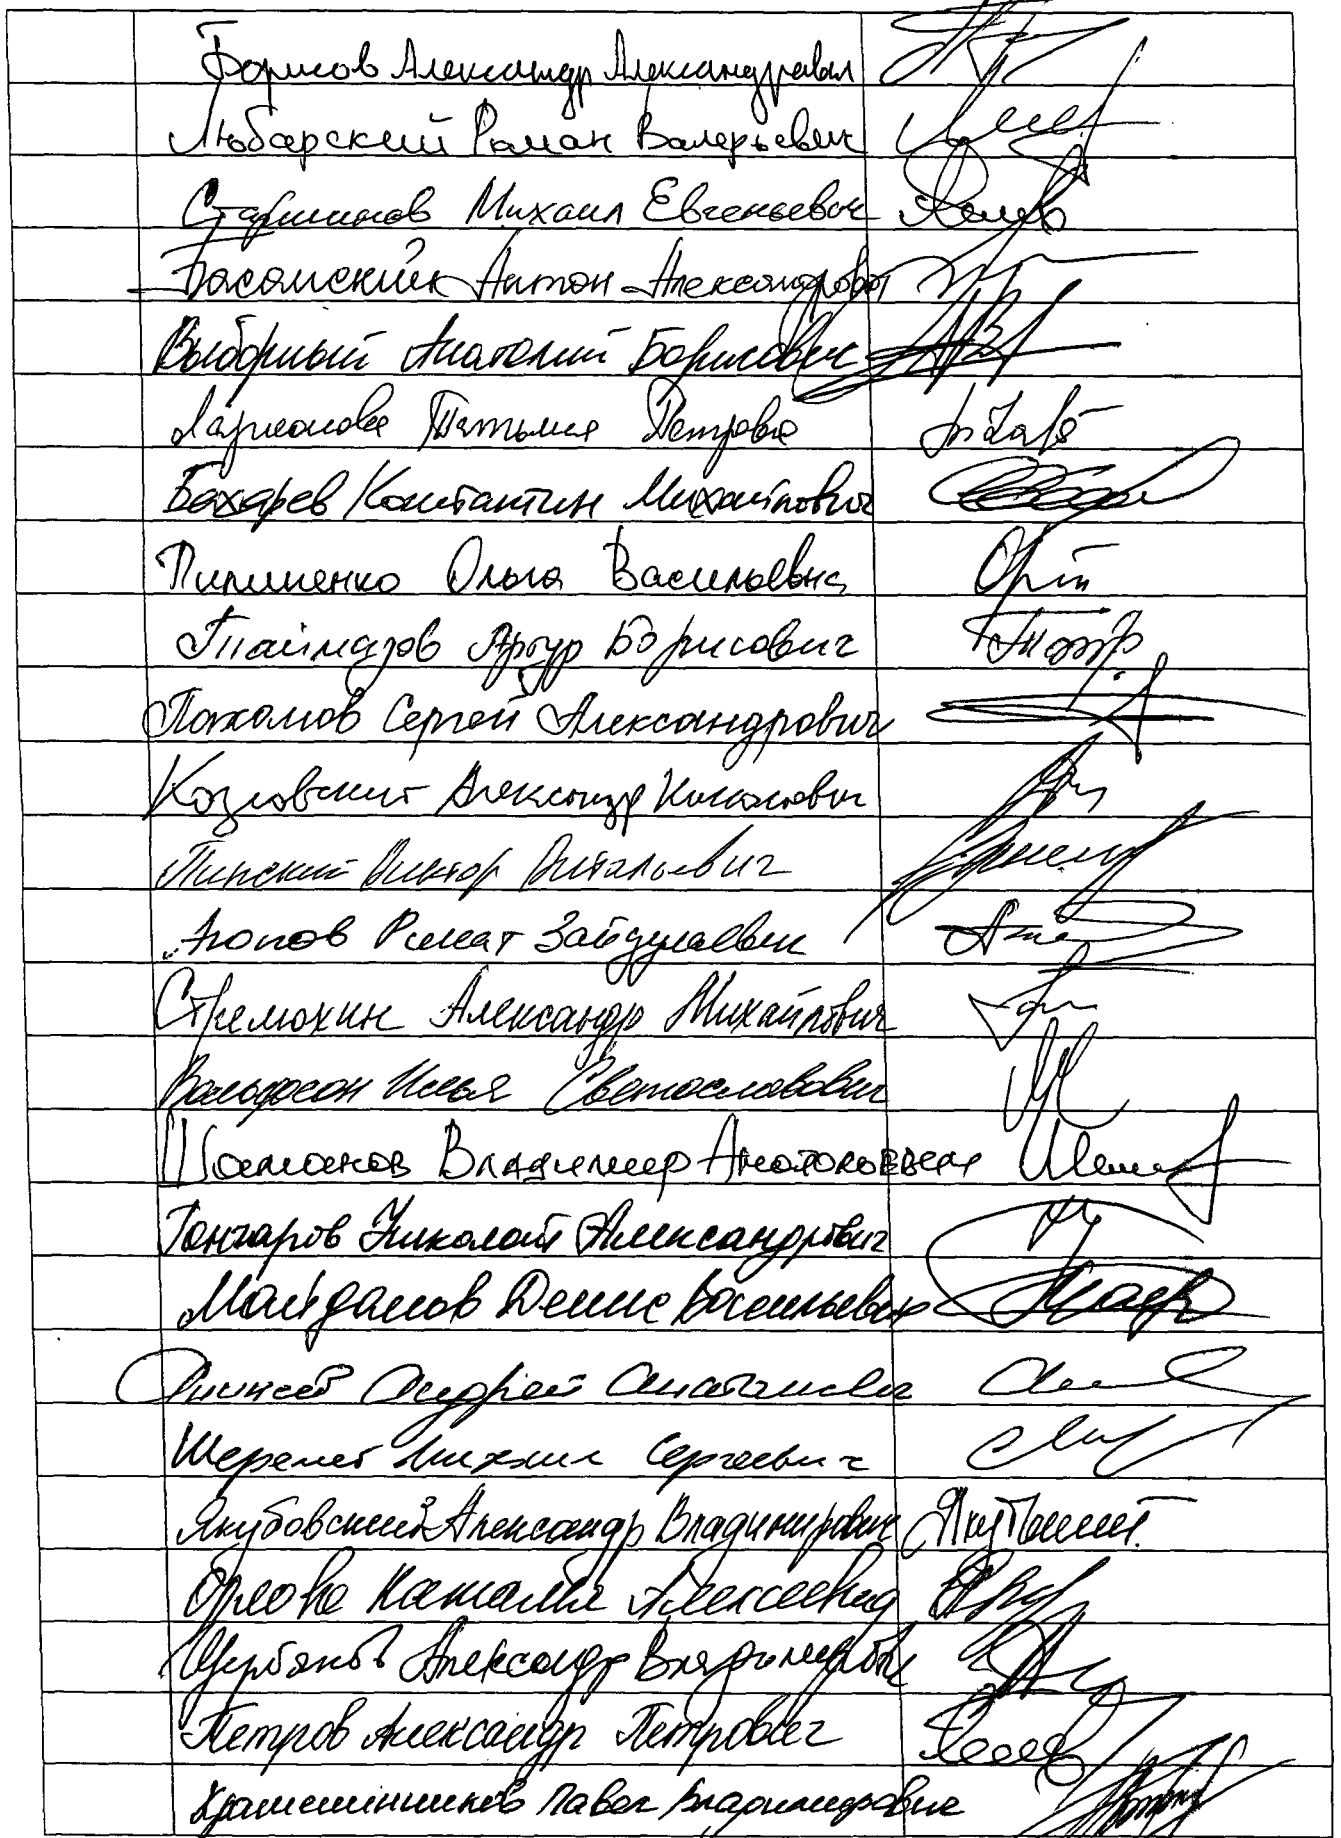 Борисов Александр Александрович
Любарский Роман Валерьевич
Старшинов Михаил Евгеньевич
Басанский Антон Александрович
Выборный Анатолий Борисович
Ларионова Татьяна Петровна
Бахарев Константин Михайлович
Пилипенко Ольга Васильевна
Таймазов Артур Борисович
Пахомов Сергей Александрович
Козловский Александр Николаевич
Пинский Виктор Витальевич
Аюпов Ринат Зайдулаевич
Стрелюхин Александр Михайлович
Вольфсон Илья Светославович
Шаманов Владимир Анатольевич
Гончаров Николай Александрович
Майданов Денис Васильевич
Андрей Анатольевич
Шеремет Михаил Сергеевич
Якубовский Александр Владимирович
Орлова Наталья Алексеевна
Щербаков Александр Владимирович
Петров Александр Петрович
Павел Владимирович